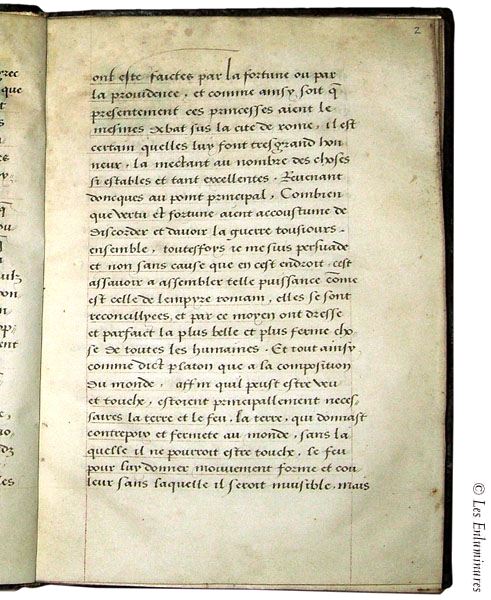 2
ont este faictes par la fortune ou par
la providence, et comme ainsy soit q̃
presentement ces princesses aient le
mesmes debat sus la cite de rome, il est
certain quelles luy font tresgrand hon
neur, la mectant au nombre des choses
si estables et tant excellentes. Revenant
doncques au point principal, Combien
que vertu et fortune aient accoustume de
discorder et davoir la guerre tousiours
ensemble, toutesfoys ie me suis persuade
et non sans cause que en cest endroit, cest
assavoir a assembler telle puissance cõme
est celle de lempyre romain, elles se sont
reconcillyees, et par ce moyen ont dresse
et parfaict la plus belle et plus ferme cho
se de toutes les humaines. Et tout ainsy
comme dict platon que a la composition
du monde, affin quil peust estre veu
et touche, estoient principallement neces,
saires la terre et le feu, la terre, qui donnast
contrepoix et fermete au monde, sans la
quelle il ne pourroit estre touche, le feu
pour luy donner mouvement forme et cou
leur sans laquelle il seroit invisible, mais
© Les Enluminures